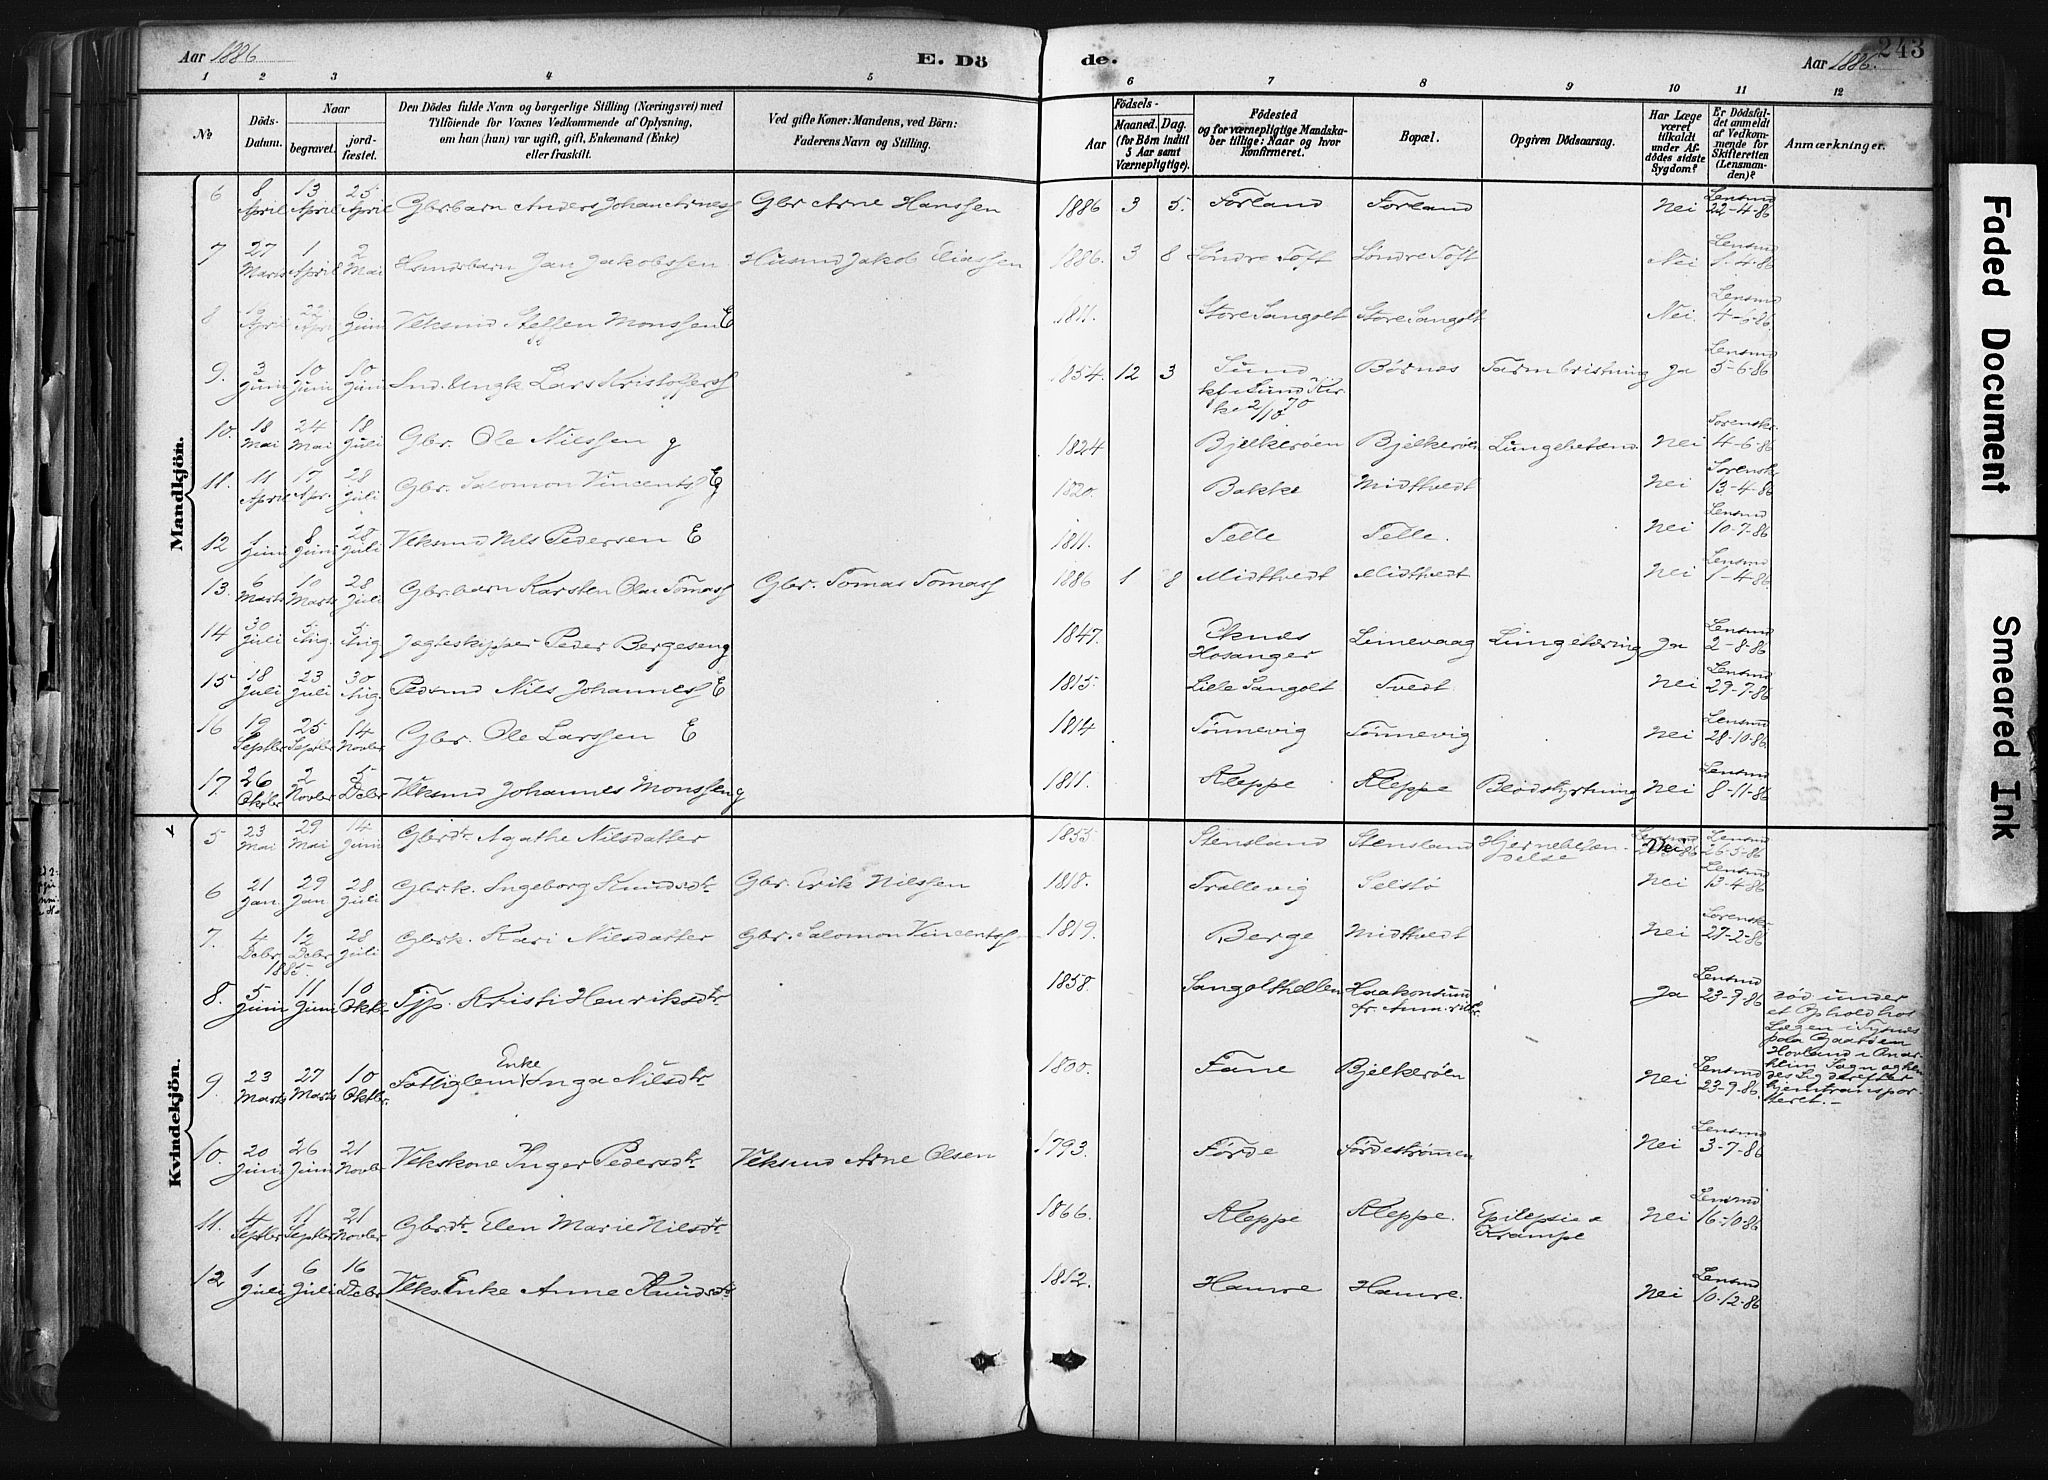 Aar 1886
E. Dö
de.
Aar 1886.
243
1 2 3 4 5 6 7 8 9 10 11 12
No
Döds-Datum.
Naar
begravet.
jord-fæstet.
Den Dödes fulde Navn og borgerlige Stilling (Næringsvei) med
Tilföiende for Voxnes Vedkommende af Oplysning,
om han (hun) var ugift, gift, Enkemand (Enke)
eller fraskilt.
Ved gifte Koner: Mandens, ved Börn:
Faderens Navn og Stilling.
Födsels-
Aar
Maaned. Dag.
(for Börn indtil
5 Aar samt
Værnepligtige).
Födested
og for værnepligtige Mandska-
ber tillige: Naar og hvor
konfirmeret.
Bopæl.
Opgiven Dödsaarsag.
Har Læge
været
tilkaldt
under Af-
dödes sidste
Sygdom?
Er Dödsfal-
det anmeldt
af Vedkom-
mende for
Skifteretten
(Lensman-
den)?
Anmærkninger.
Mandkjön.
6 8 April 13 April 25 April Gbrbarn Anders Johan Arness Gbr Arne Hanssen 1886 3 5. Forland Forland Nei Lensmd 22-4-86
7 27 Marts 1 April 2 Mai Hsmdsbarn Jan Jakobssen Husmd Jakob Eliassen 1886. 3 8 Søndre Toft Søndre Toft Nei Lensmd 1-4-86
8 19 April 6 Juni Veksmd Steffen Monssen E 1811. Store Sangolt Store Sangolt Nei. Lensmd
9. 3 Juni 10 Juni 10 Juni Ind. Ungk Lars Kristoffers 1854. 12 3 Sund Børnes Tarmbristning Ja Lensmd 5-6-86
kf i Sund Kir-
ke 2/10 70
10. 18 Mai 24 Mai 18 Juli Gbr. Ole Nilssen g 1824 Bjelkerøen Bjelkerøen Lungebetænd. Nei Sorenskr. 4-6-86
11. 11 April 17 Apr. 28 Juli Gbr. Salomon Vincents E 1820. Bakke Midttvedt Nei Sorenskr. 13-4-86
12 1 Juni 8 Juni 28 Juli Veksmd Nils Pedersen E 1811. Telle Telle. Nei Lensmd 10-7-86
13. 6 Marts 10 Marts 28 Juli Gbr.barn Karsten Olai Tomass Gbr. Tomas Tomass 1886 1 8 Midttvedt Midttvedt Nei Lensmd 1-4-86
14 30 Juli 5 Aug. 5 Aug Jagteskipper Peder Bergesen g 1847. Eknæs Hosanger Limevaag Lungetæring Ja Lensmd 2-8-86
15 18 Juli 23 Juli 30 Aug. Pedsmd Nils Johanness E 1815. Lille Sangolt Tvedt Nei Lensmd 29-7-86
16 19 Septbr 25 Septbr 14 Novbr Gbr. Ole Larssen E 1814 Tønnevig Tønnevig Nei Lensmd 28-10-86
17. 26 Oktbr 2 Novbr 5 Debr Veksmd Johannes Monssen g 1811. Kleppe Kleppe Blodstyrtning Nei Lensmd 8-11-86
Kvindekjön.
5 23 Mai 29 Mai 14 Juni Gbrdtr Agathe Nilsdatter 1855 Stensland Stensland Hjernebetæn-
delse Nei Lensmd 26-5-86
6 21 Jan. 29 Jan 28 Juli Gbrk. Ingeborg Knudsdtr Gbr. Erik Nilssen 1818. Trollevig Selstø Nei Lensmd 13-4-86
7. 4 Debr 12 Debr 28 Juli Gbrk. Kari Nilsdatter Gbr. Salomon Vincents 1819. Berge Midttvedt Nei Sorenskr. 27-2-86
1885.
8. 5 Juni 11 Juni 10 Oktbr Tjp. Kristi Henriksdtr 1858. Sangolthellen Haakonsund Ja Lensmd 23-9-86 død under
et Ophold hos
Lægen i Tysnes
paa Gaarden
Hovland i
Sogn og hen-
des Lig derefter
hjemtranspor-
teret.-
9 23 Marts 27 Marts 10 Oktbr. Fattiglem Enke Inga Nilsdtr 1800. Fane Bjelkerøen Nei Lensmd 23-9-86.
10. 20 Juni 26 Juni 21 Novbr Vekskone Inger Pedersdtr Veksmd Arne Olsen 1793. Førde Førdestrømen Nei Lensmd 3-7-86
11. 4 Septbr 11 Septbr 21 Novbr Gbrdtr Elen Marie Nilsdtr 1866. Kleppe Kleppe. Epilepsie &
Krampe Nei Lensmd 16-10-86
12 1 Juli 6 Juli 16 Debr Veks.Enke Anne Knudsdtr 1812. Hamre Hamre. Nei Lensmd 10-12-86
Faded Document
Smeared Ink